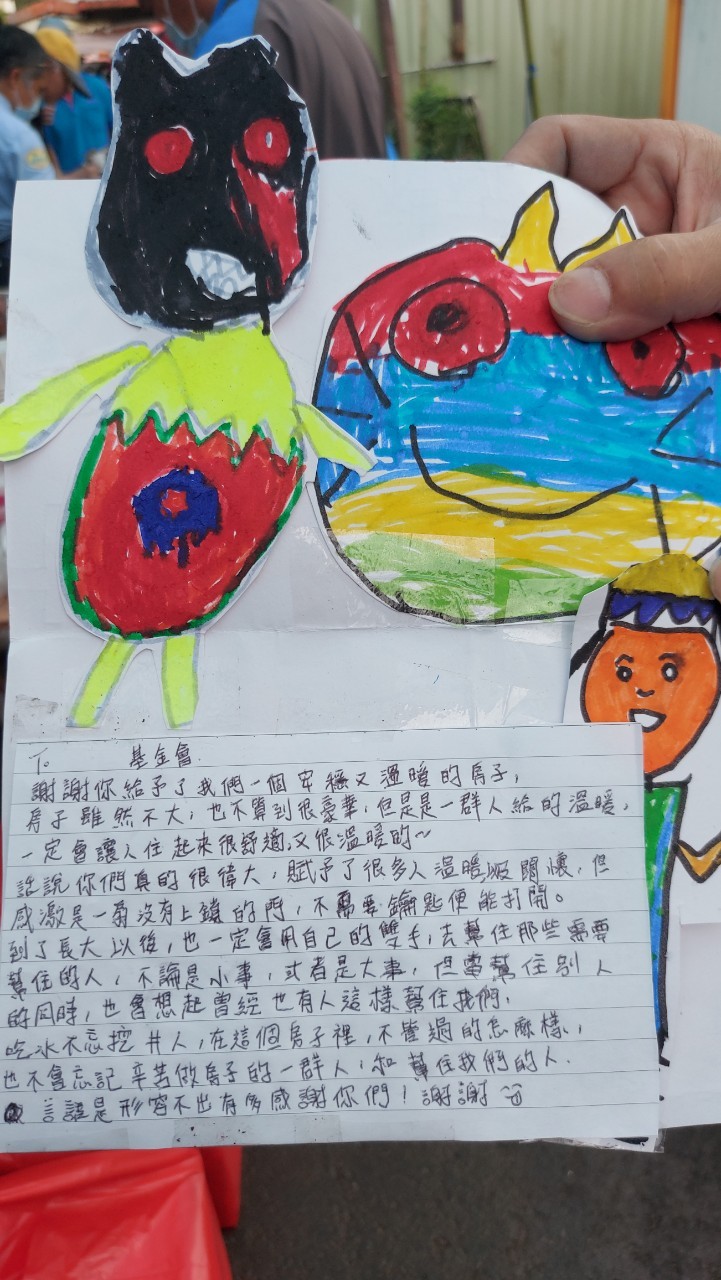 To 基金會.
謝謝你給予了我們一個安穩又溫暖的房子,
房子雖然不大,也不算到很豪華,但是是一群人給的溫暖,
一定會讓人住起來很舒適,又很溫暖的~
話說你們真的很偉大,賦予了很多人溫暖及關懷,但
感激是一扇沒有上鎖的門,不需要鑰匙便能打開。
到了長大以後,也一定會用自己的雙手,去幫住那些需要
幫住的人,不論是小事,或者是大事,但當幫住別人
的同時,也會想起曾經也有人這樣幫住我們,
吃水不忘挖井人,在這個房子裡,不管過的怎麼樣,
也不會忘記辛苦做房子的一群人,和幫住我們的人.
言語是形容不出有多感謝你們!謝謝